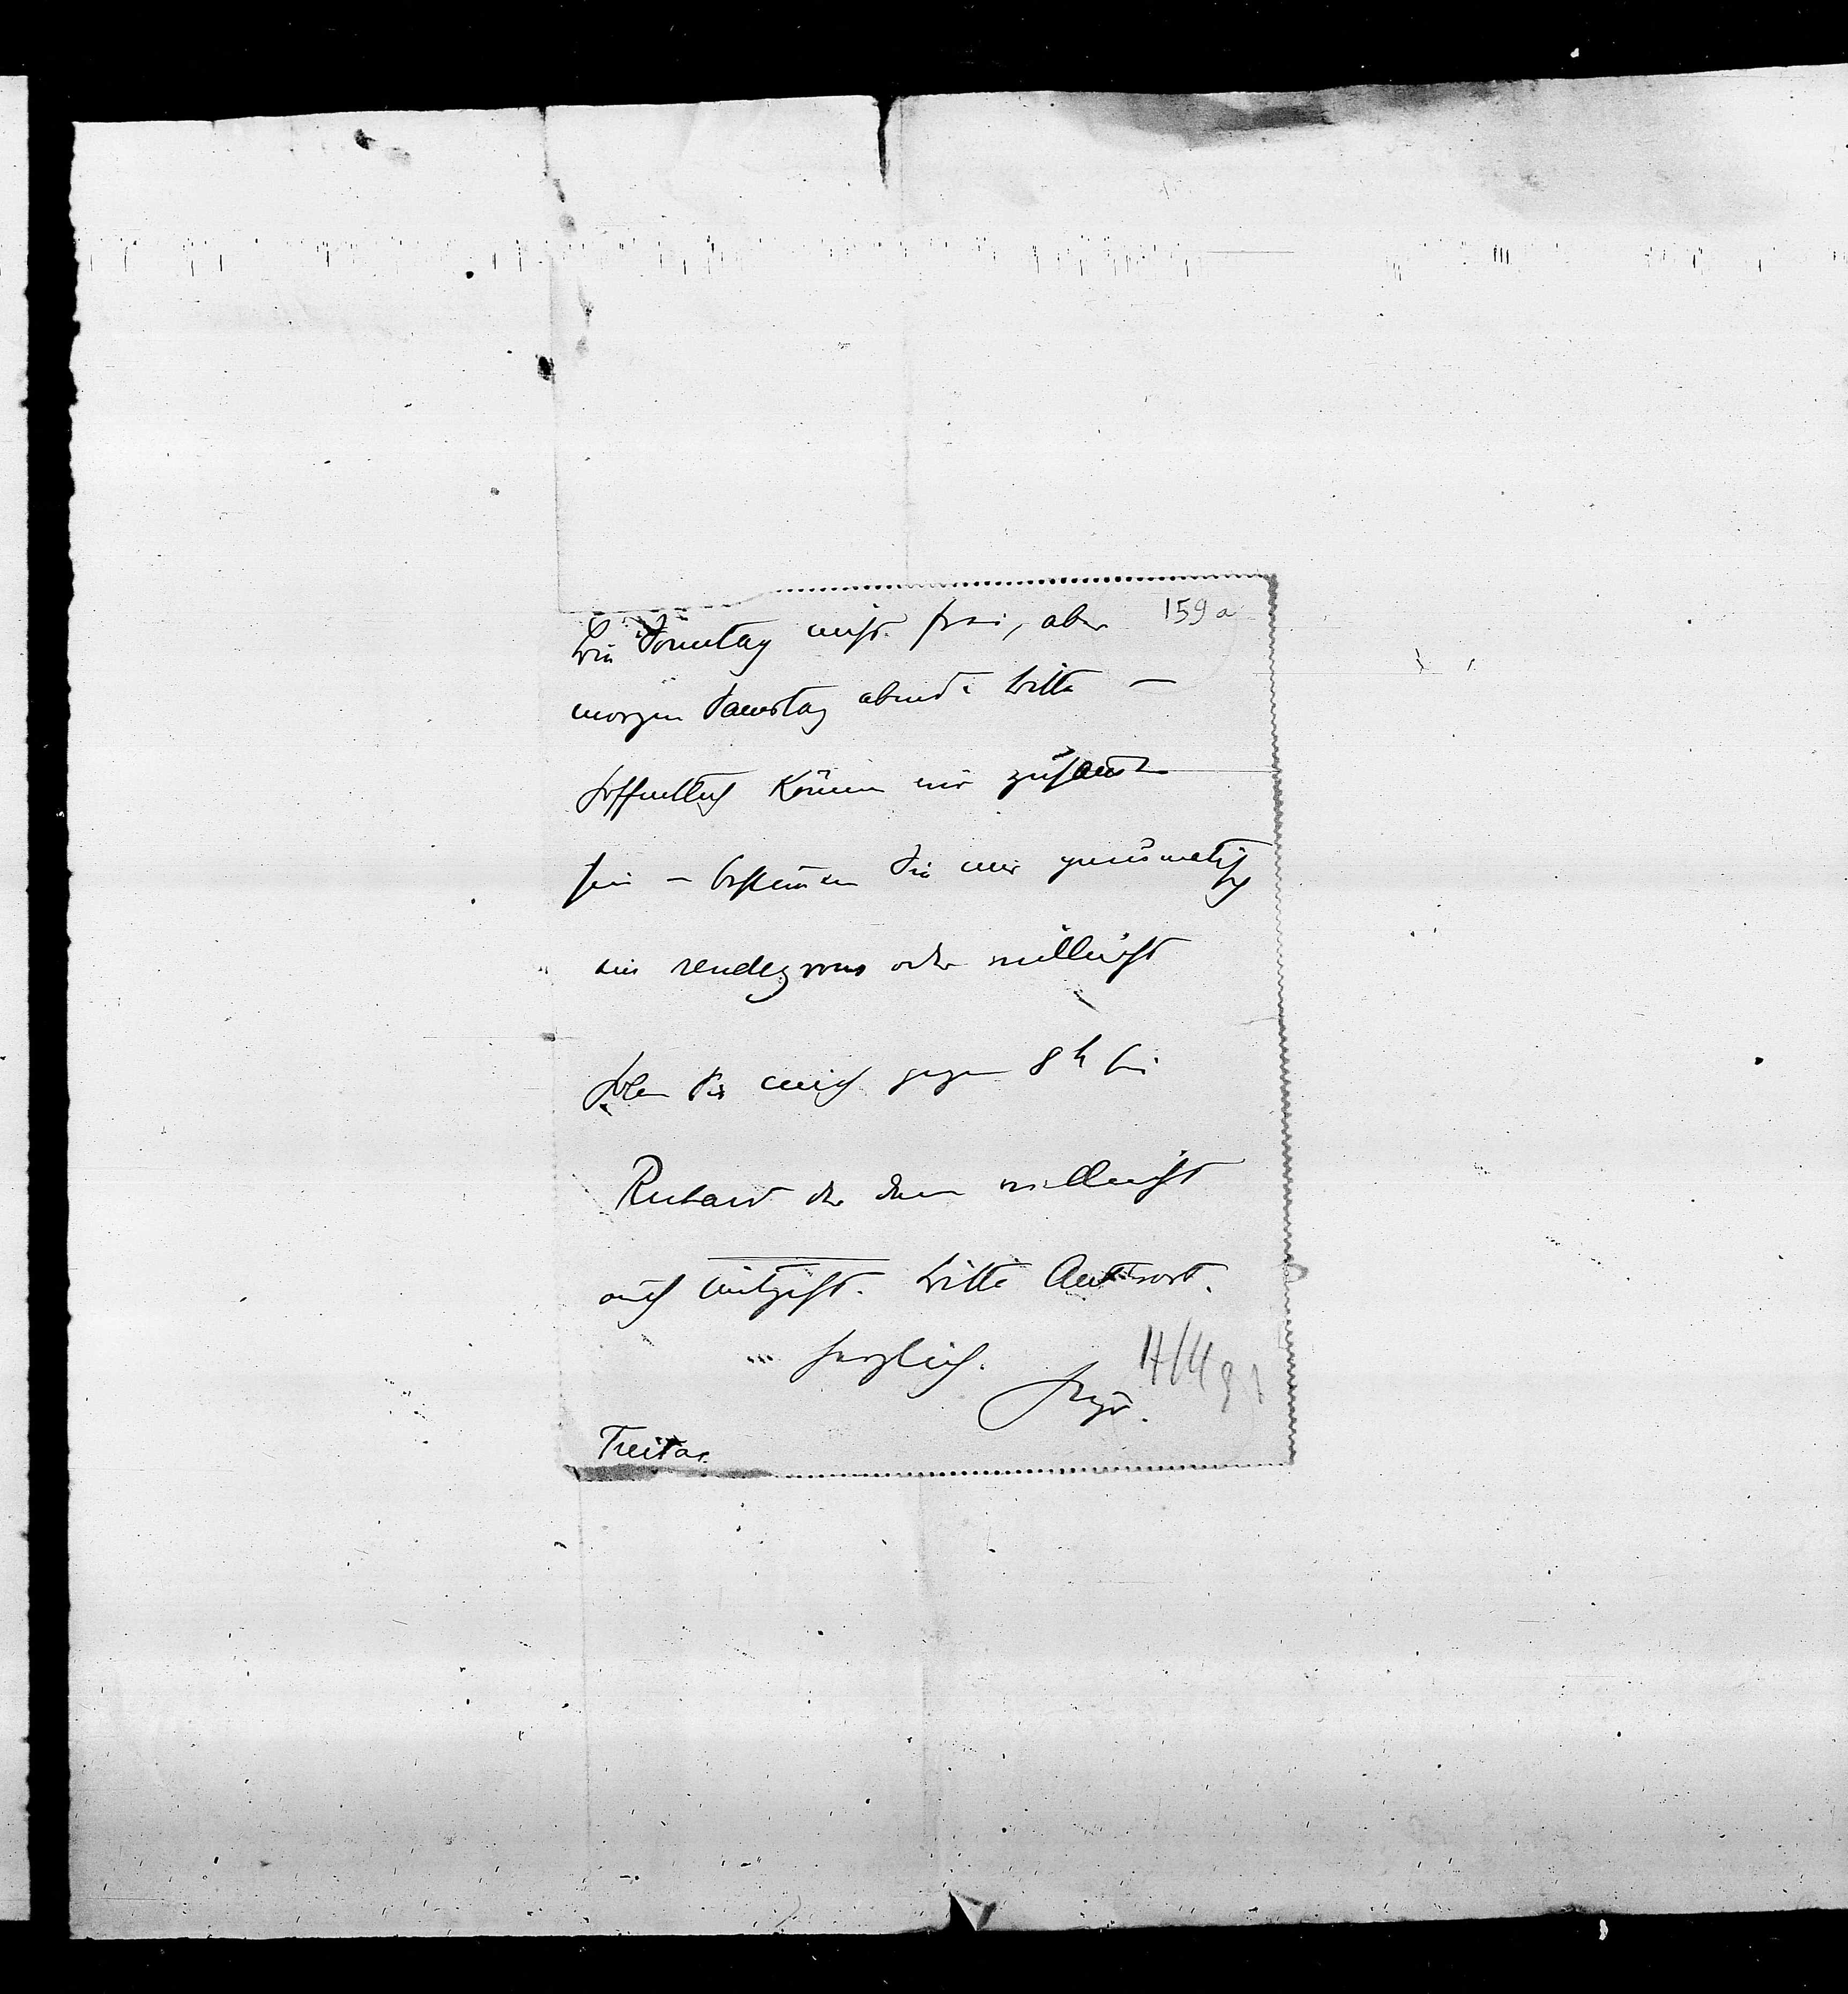 159a
bin Sonntag nicht frei, aber
morgen Samstag abend. bitte –
hoffentlich können wir zusammen
sein – bestimmen Sie mir pneumatisch
ein rendezvous oder vielleicht
holen Sie mich gegen 8h bei
Richard der dann vielleicht
auch mitgeht. bitte Antwort.
herzlich.
Hugo.
Freitag.